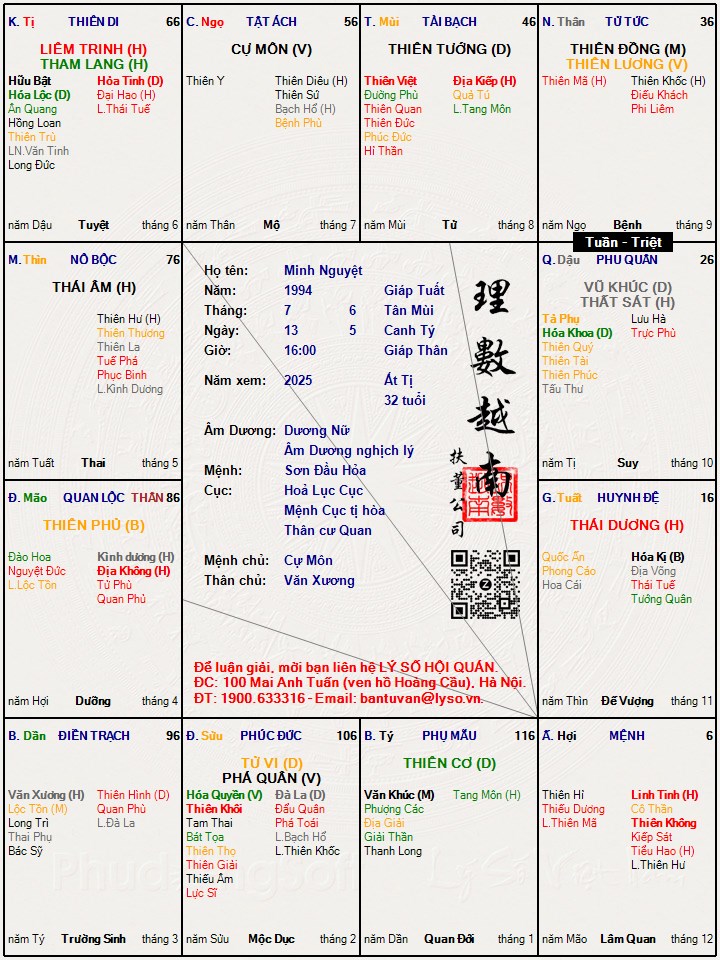 K. Tị THIÊN DI 66
LIÊM TRINH (H)
THAM LANG (H)
Hữu Bật Hỏa Tinh (D)
Hóa Lộc (D) Đại Hao (H)
Ân Quang L.Thái Tuế
Hồng Loan
Thiên Trù
LN.Văn Tinh
Long Đức
năm Dậu Tuyệt tháng 6
C. Ngọ TẬT ÁCH 56
CỰ MÔN (V)
Thiên Y Thiên Diêu (H)
Thiên Sứ
Bạch Hổ (H)
Bệnh Phù
năm Thân Mộ tháng 7
T. Mùi TÀI BẠCH 46
THIÊN TƯỚNG (D)
Thiên Việt Địa Kiếp (H)
Đường Phù Quả Tú
Thiên Quan L.Tang Môn
Thiên Đức
Phúc Đức
Hỉ Thần
năm Mùi Tử tháng 8
N. Thân TỬ TỨC 36
THIÊN ĐỒNG (M)
THIÊN LƯƠNG (V)
Thiên Mã (H) Thiên Khốc (H)
Điếu Khách
Phi Liêm
năm Ngọ Bệnh tháng 9
Tuần - Triệt
M. Thìn NÔ BỘC 76
THÁI ÂM (H)
Thiên Hư (H)
Thiên Thương
Thiên La
Tuế Phá
Phục Binh
L.Kình Dương
năm Tuất Thai tháng 5
Họ tên: Minh Nguyệt
Năm: 1994 Giáp Tuất
Tháng: 7 6 Tân Mùi
Ngày: 13 5 Canh Tý
Giờ: 16:00 Giáp Thân
Năm xem: 2025 Ất Tị
32 tuổi
Âm Dương: Dương Nữ
Âm Dương nghịch lý
Mệnh: Sơn Đầu Hỏa
Cục: Hoả Lục Cục
Mệnh Cục tị hòa
Thân cư Quan
Mệnh chủ: Cự Môn
Thân chủ: Văn Xương
理數越南
扶董公司
Để luận giải, mời bạn liên hệ LÝ SỐ HỘI QUÁN.
ĐC: 100 Mai Anh Tuấn (ven hồ Hoàng Cầu), Hà Nội.
ĐT: 1900.633316 - Email: bantuvan@lyso.vn.
Q. Dậu PHU QUÂN 26
VŨ KHÚC (D)
THẤT SÁT (H)
Tả Phụ Lưu Hà
Hóa Khoa (D) Trực Phù
Thiên Quý
Thiên Tài
Thiên Phúc
Tấu Thư
năm Tị Suy tháng 10
Đ. Mão QUAN LỘC THÂN 86
THIÊN PHỦ (B)
Đào Hoa Kình dương (H)
Nguyệt Đức Địa Không (H)
L.Lộc Tồn Tử Phù
Quan Phủ
năm Hợi Dưỡng tháng 4
G. Tuất HUYNH ĐỆ 16
THÁI DƯƠNG (H)
Quốc Ấn Hóa Kị (B)
Phong Cáo Địa Võng
Hoa Cái Thái Tuế
Tướng Quân
năm Thìn Đế Vượng tháng 11
B. Dần ĐIỀN TRẠCH 96
Văn Xương (H) Thiên Hình (D)
Lộc Tồn (M) Quan Phù
Long Trì L.Đà La
Thai Phụ
Bác Sỹ
năm Tý Trường Sinh tháng 3
Đ. Sửu PHÚC ĐỨC 106
TỬ VI (D)
PHÁ QUÂN (V)
Hóa Quyền (V) Đà La (D)
Thiên Khôi Đẩu Quân
Tam Thai Phá Toái
Bát Tọa L.Bạch Hổ
Thiên Thọ L.Thiên Khốc
Thiên Giải
Thiếu Âm
Lực Sĩ
năm Sửu Mộc Dục tháng 2
B. Tý PHỤ MẪU 116
THIÊN CƠ (D)
Văn Khúc (M) Tang Môn (H)
Phượng Các
Địa Giải
Giải Thần
Thanh Long
năm Dần Quan Đới tháng 1
Ấ. Hợi MỆNH 6
Thiên Hỉ Linh Tinh (H)
Thiếu Dương Cô Thần
L.Thiên Mã Thiên Không
Kiếp Sát
Tiểu Hao (H)
L.Thiên Hư
năm Mão Lâm Quan tháng 12